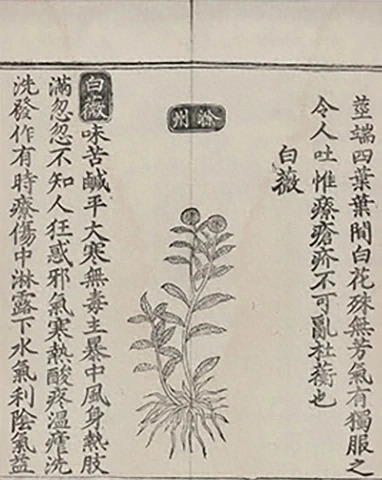 莖端四葉葉間白花殊無芳氣有獨服之
令人吐惟療瘡疥不可亂杜蘅也
白薇
滁州
白薇味苦鹹平大寒無毒主暴中風身熱肢
滿忽忽不知人狂惑邪氣寒熱酸疼溫瘧洗
洗發作有時療傷中淋露下水氣利陰氣益